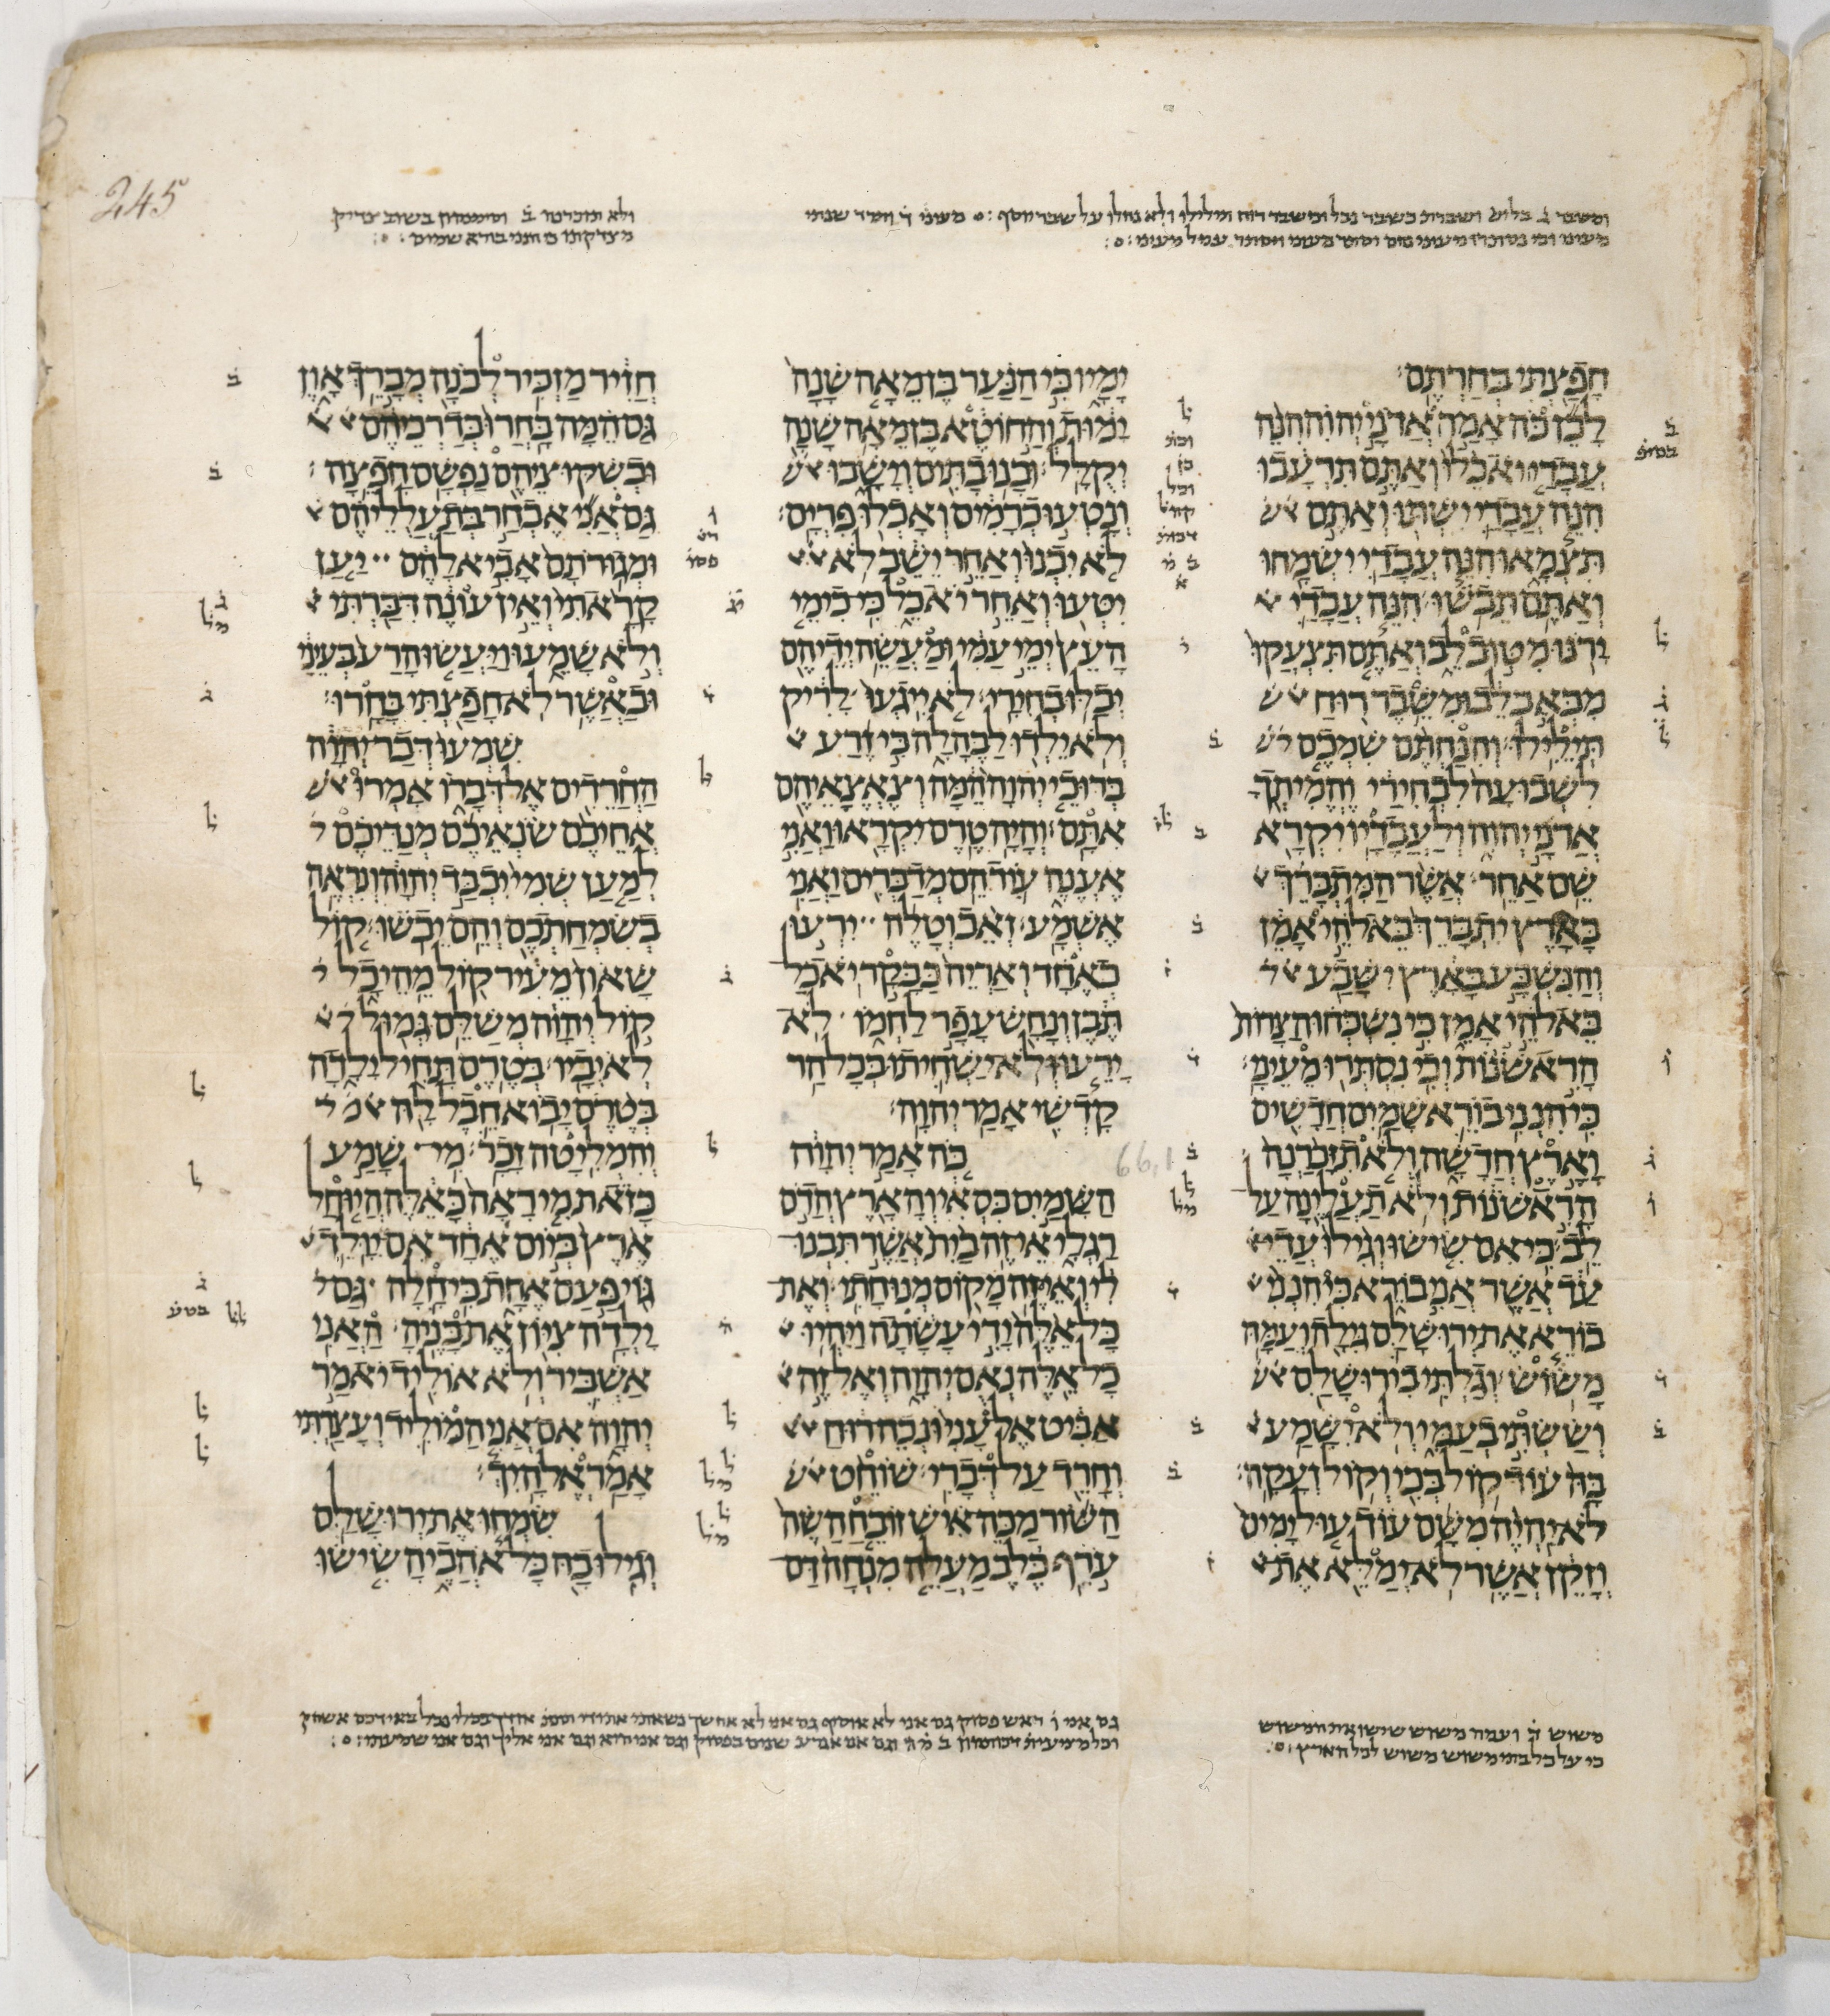 245
חפצתי בחרתם
לכן כה אמר אדני יהוה הנה
עבדי יאכלו ואתם תרעבו
הנה עבדי ישתו ואתם
תצמאו הנה עבדי ישמחו
ואתם תבשו הנה עבדי
ירנו מטוב לב ואתם תצעקו
מכאב לב ומשבר רוח
תילילו והנחתם שמכם
לשבועה לבחירי והמיתך
אדני יהוה ולעבדיו יקרא
שם אחר אשר המתברך
בארץ יתברך באלהי אמן
והנשבע בארץ ישבע
באלהי אמן כי נשכחו הצרות
הראשנות וכי נסתרו מעיני
כי הנני בורא שמים חדשים
וארץ חדשה ולא תזכרנה
הראשנות ולא תעלינה על
לב כי אם שישו וגילו עדי
עד אשר אני בורא כי הנני
בורא את ירושלם גילה ועמה
משוש וגלתי בירושלם
וששתי בעמי ולא ישמע
בה עוד קול בכי וקול זעקה
לא יהיה משם עוד עול ימים
וזקן אשר לא ימלא את
ימיו כי הנער בן מאה שנה
ימות והחוטא בן מאה שנה
יקלל ובנו בתים וישבו
ונטעו כרמים ואכלו פרים
לא יבנו ואחר ישב לא
יטעו ואחר יאכל כי כימי
העץ ימי עמי ומעשה ידיהם
יבלו בחירי לא ייגעו לריק
ולא ילדו לבהלה כי זרע
ברוכי יהוה המה וצאצאיהם
אתם והיה טרם יקראו ואני
אענה עוד הם מדברים ואני
אשמע זאב וטלה ירעו
כאחד ואריה כבקר יאכל
תבן ונחש עפר לחמו לא
ירעו ולא ישחיתו בכל הר
קדשי אמר יהוה
כה אמר יהוה
66,1
השמים כסאי והארץ הדם
רגלי אי זה בית אשר תבנו
לי ואי זה מקום מנוחתי ואת
כל אלה ידי עשתה ויהיו
כל אלה נאם יהוה ואל זה
אביט אל עני ונכה רוח
וחרד על דברי שוחט
השור מכה איש זובח השה
ערף כלב מעלה מנחה דם
חזיר מזכיר לבנה מברך און
גם המה בחרו בדרכיהם
ובשקוציהם נפשם חפצה
גם אני אבחר בתעלליהם
ומגורתם אביא להם יען
קראתי ואין עונה דברתי
ולא שמעו ויעשו הרע בעיני
ובאשר לא חפצתי בחרו
שמעו דבר יהוה
החרדים אל דברו אמרו
אחיכם שנאיכם מנדיכם
למען שמי יכבד יהוה ונראה
בשמחתכם והם יבשו קול
שאון מעיר קול מהיכל
קול יהוה משלם גמול
לאיביו בטרם תחיל ילדה
בטרם יבוא חבל לה
והמליטה זכר מי שמע
כזאת מי ראה כאלה היוחל
ארץ ביום אחד אם יולד
גוי פעם אחת כי חלה גם
ילדה ציון את בניה האני
אשביר ולא אוליד יאמר
יהוה אם אני המוליד ועצרתי
אמר אלהיך
שמחו את ירושלם
וגילו בה כל אהביה שישו
משוש ועמה משוש שישו אתה משוש
כי על כל בתי משוש משוש לכל הארץ
גם אני ראש פסוק גם אני לא אוסיף גם אני לא אחשך